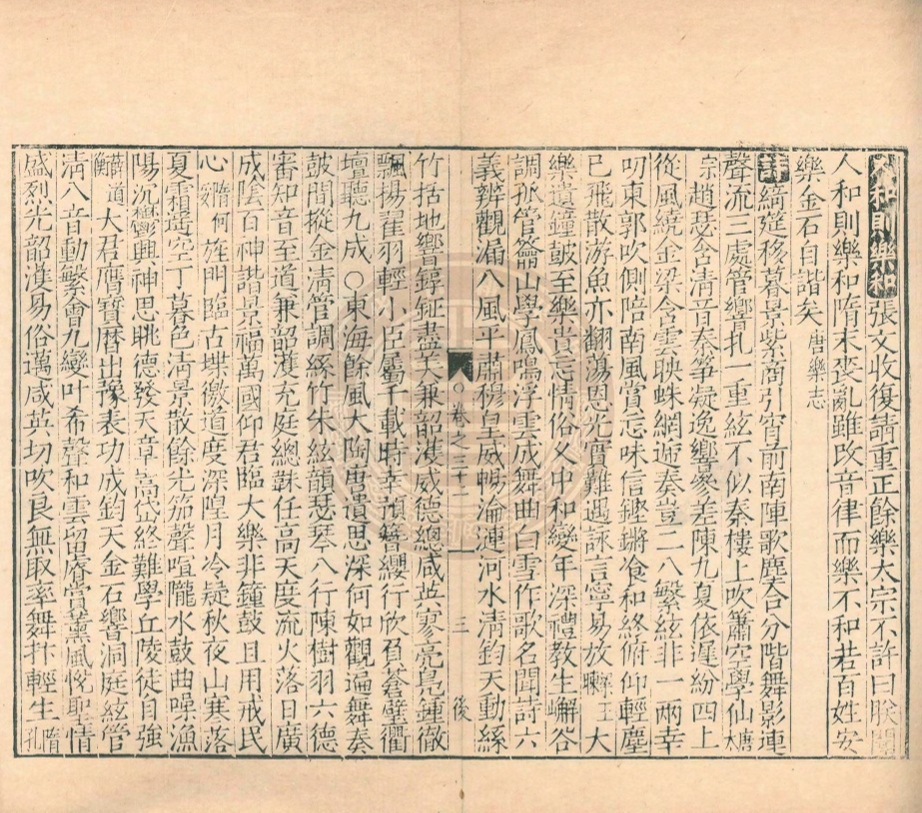 人和則樂和張文收復請重正餘樂太宗不許曰朕聞
人和則樂和隋末喪亂雖改音律而樂不和若百姓安
樂金石自諧矣唐樂志
詩綺筵移暮景紫商引宵前南陣歌塵合分階舞影連
聲流三處管響扎一重絃不似秦樓上吹簫空學仙大唐
宗趙瑟含清音秦箏凝逸響參差陳九夏依遲紛四上
從風繞金梁含雲映蛛網迊奏豈二八繁絃非一兩幸
叨東郭吹側陪南風賞忘味信鏗鏘飡和終俯仰輕塵
已飛散游魚亦翻蕩恩光實難遇詠言寧易放王暕大
樂遺鐘皷至樂貴忘情俗乂中和變年深禮教生嶰谷
調孤管崙山學鳳鳴浮雲成舞曲白雪作歌名聞詩六
義辨觀漏八風平肅穆皇威暢淪漣河水清鈞天動絲
○卷之三十二 三 後
竹括地響錞鉦盡美兼韶濩威德總咸英寥亮鳧鍾徹
飄揚翟羽輕小臣屬千載時幸預簪纓行欣負蒼璧衢
壇聽九成○東海餘風大陶唐遺思深何如觀遍舞奏
皷間摐金清管調絲竹朱絃韻瑟琴八行陳樹羽六德
審知音至道兼韶濩充庭總韎任高天度流火落日廣
成陰百神諧景福萬國仰君臨大樂非鐘鼓且用戒民
心隋何妥旌門臨古堞徼道度深隍月冷疑秋夜山寒落
夏霜遙空丁暮色清景散餘光笳聲喧隴水鼓曲噪漁
陽沉鬱興神思眺德發天章嵩岱終難學丘陵徒自強
薛道衡大君膺寶曆出豫表功成鈞天金石響洞庭絃管
清八音動繁會九變叶希聲和雲留睿賞薰風悅聖情
盛烈光韶濩易俗邁咸英切吹良無取率舞抃輕生隋孔